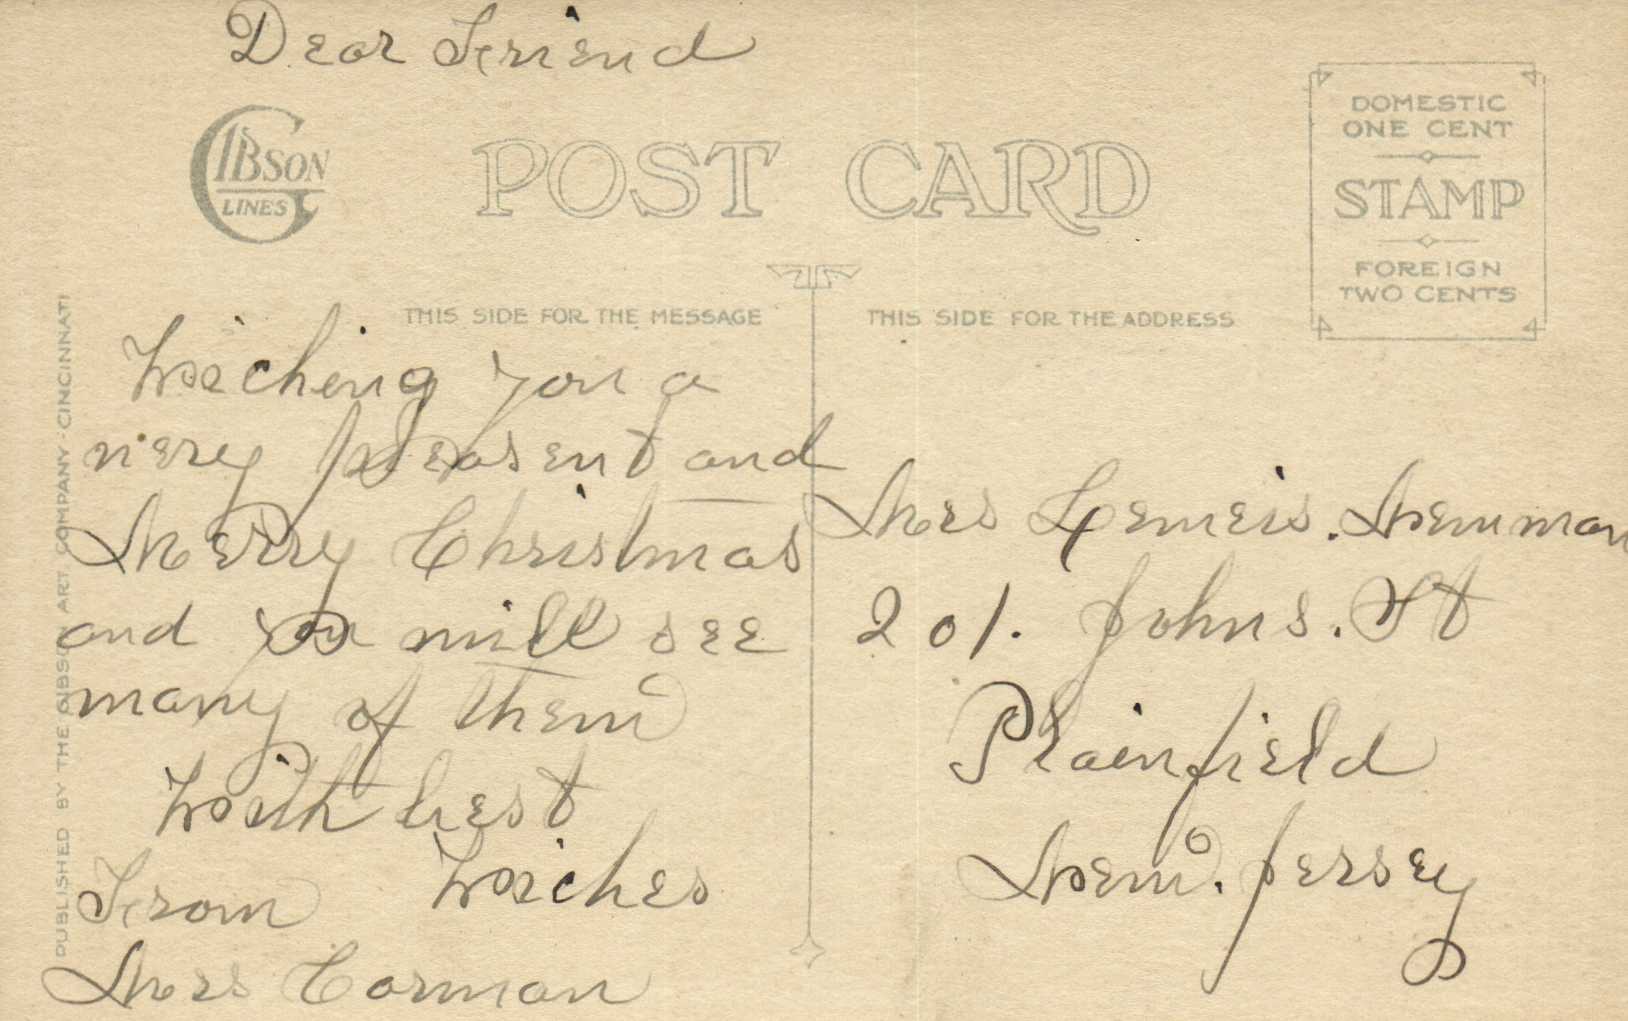 Dear Friend
GIBSON
LINES
POST CARD
DOMESTIC
ONE CENT
STAMP
FOREIGN
TWO CENTS
THIS SIDE FOR THE MESSAGE
THIS SIDE FOR THE ADDRESS
PUBLISHED BY THE GIBSON ART COMPANY - CINCINNATI
Wiching you a
very plesent and
Merry Christmas
and you will see
many of them
With best
Wiches
From
Mrs Corman
Mrs . Newman
201. Johns. St
Plainfield
New. Jersey